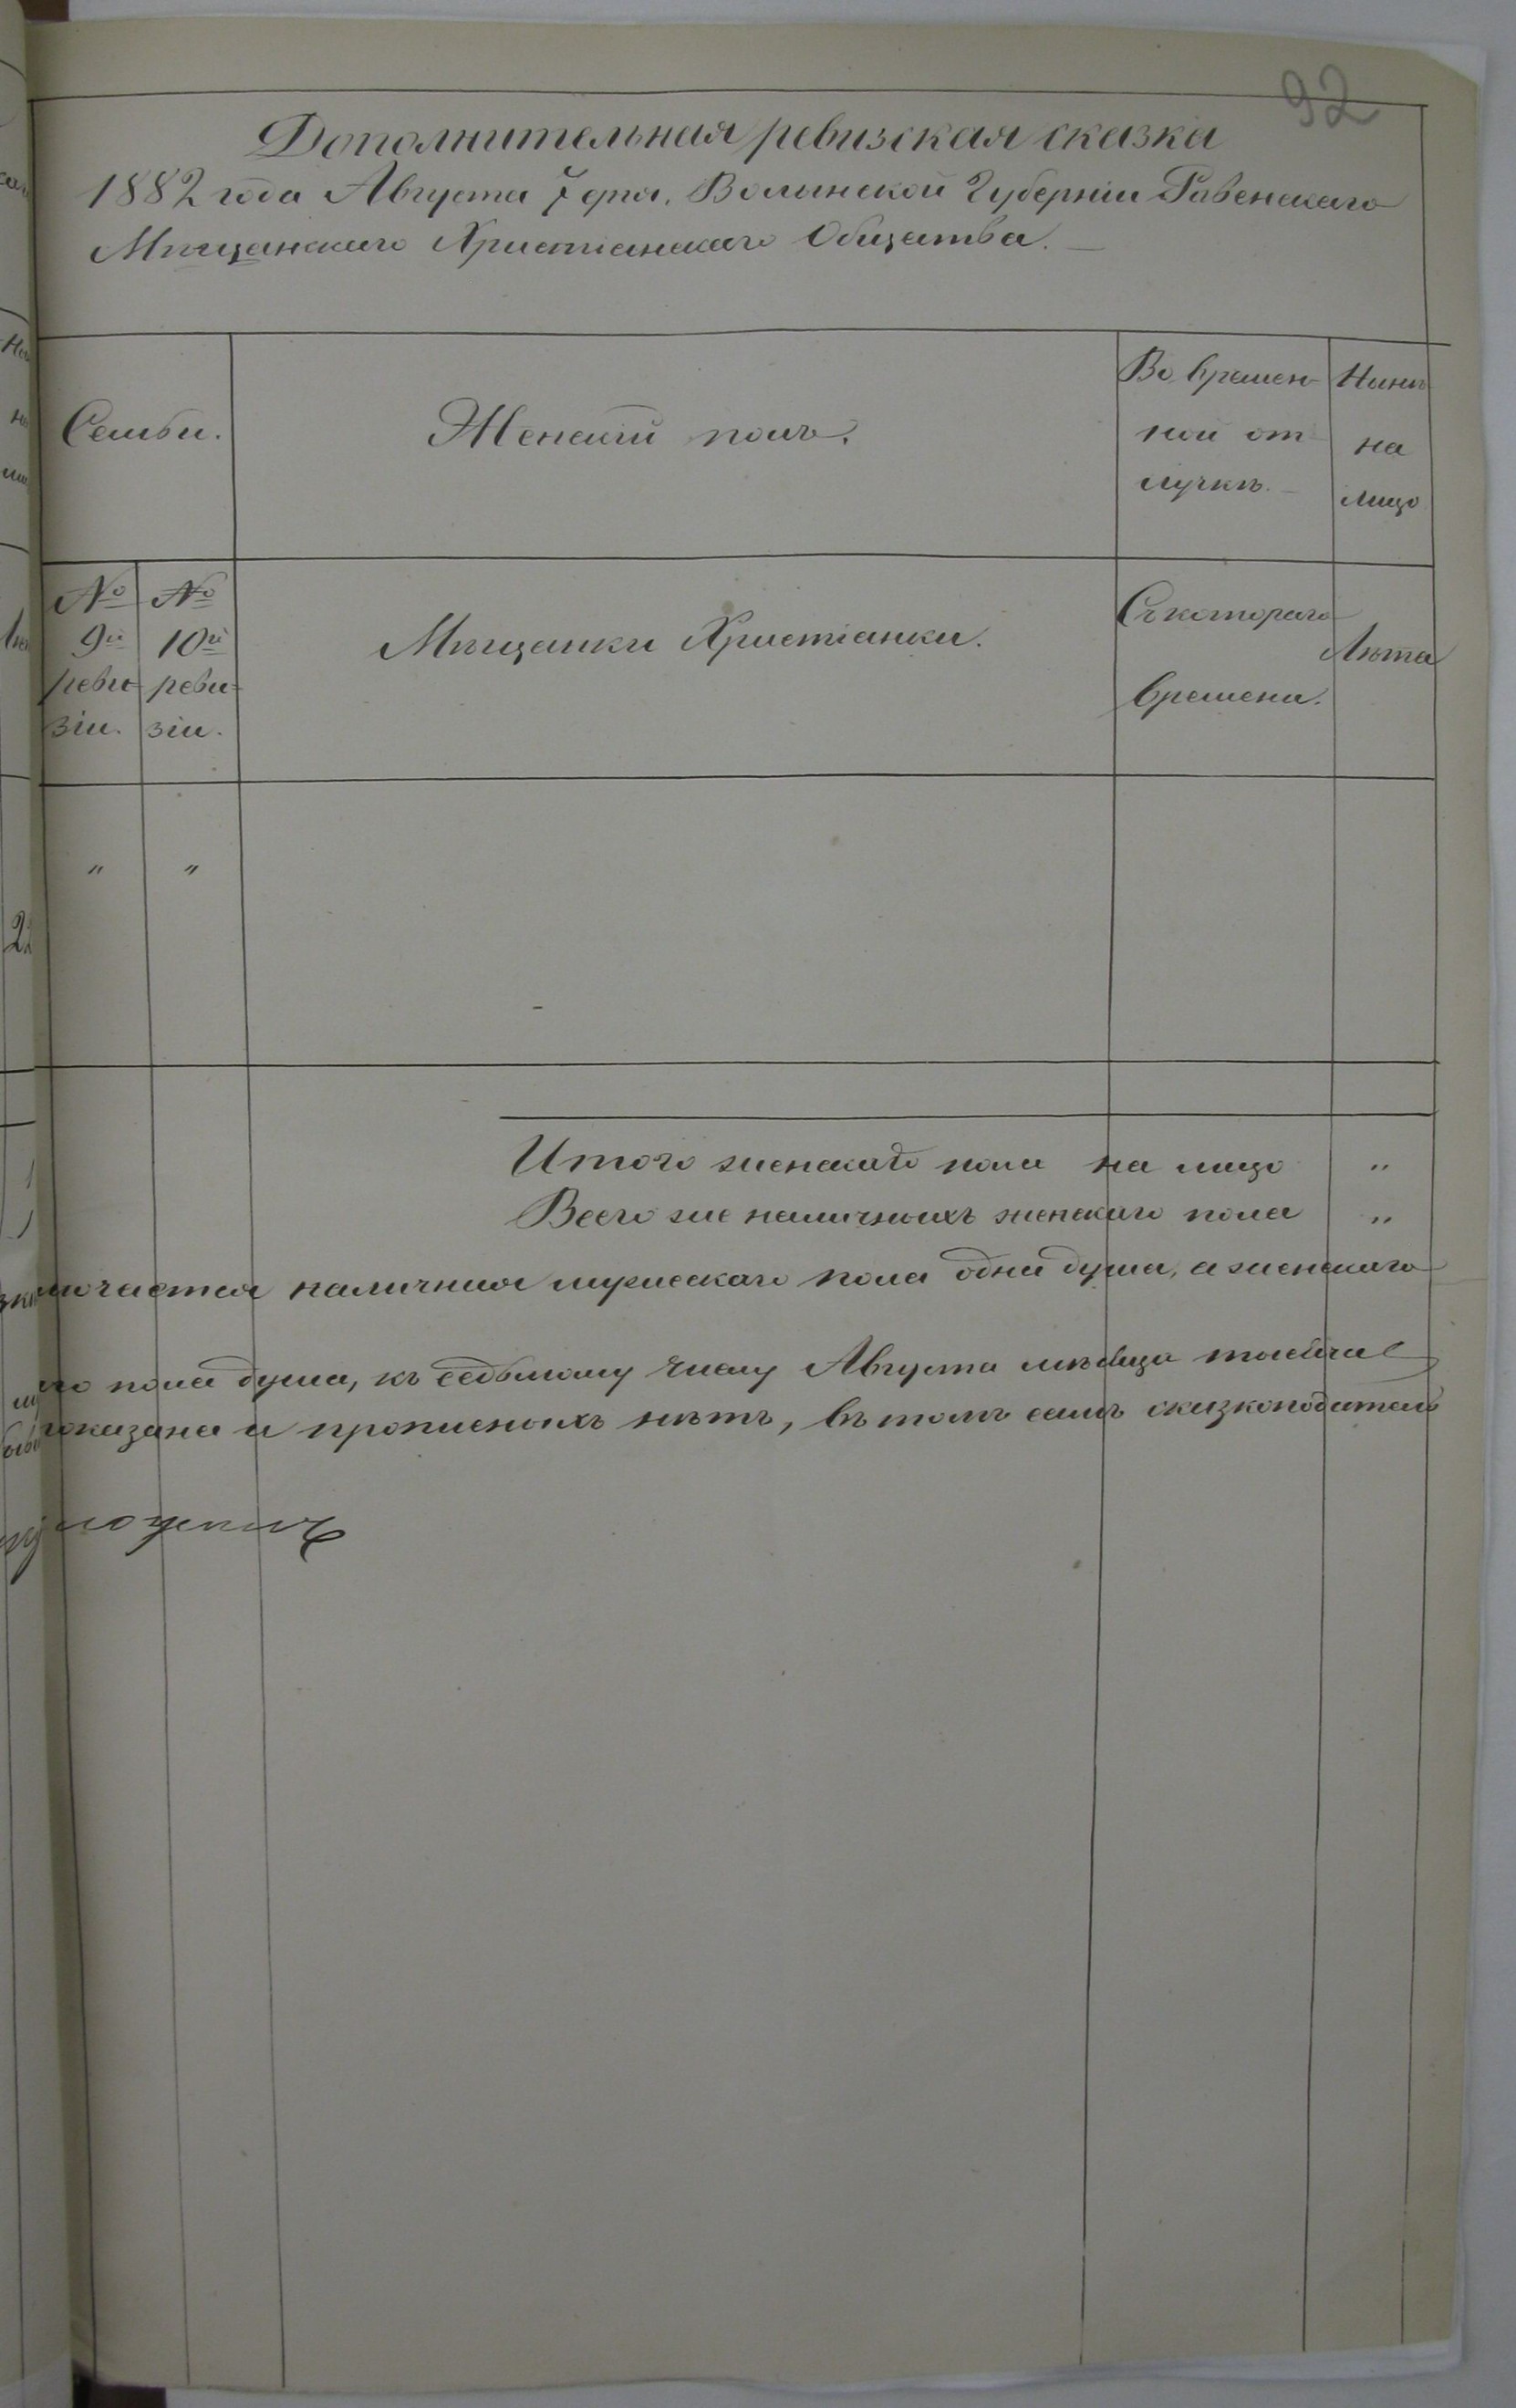 92
Дополнительная ревизская сказка
1882 года Августа 7 дня. Волынской Губерніи Ровенскаго
Мѣщанскаго Христіанскаго Общества.
Семьи.
Женскій полъ.
Во времен-
ной от
лучкѣ.
Нынѣ
на
лицо
№
9й
реви-
зіи.
№
10й
реви-
зіи.
Мѣщанки Христіанки.
Съ котораго
времени.
Лѣта
"
"
Итого женскаго пола на лицо "
Всего же наличныхъ женскаго пола "
ючается наличная мужескаго пола одна душа, а женскаго
го пола душа, къ седьмому числу Августа мѣсяца тысяча
показана и прописныхъ нѣтъ, въ томъ самъ сказкоподатель